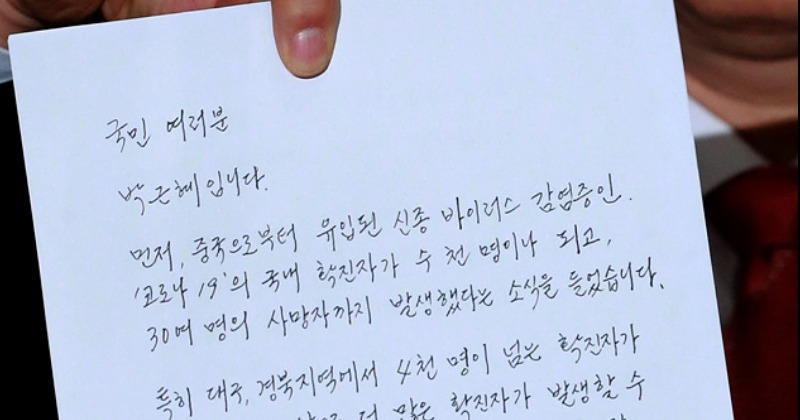 국민 여러분
박근혜입니다.
먼저, 중국으로부터 유입된 신종 바이러스 감염증인.
'코로나 19'의 국내 확진자가 수 천 명이나 되고,
30여 명의 사망자까지 발생했다는 소식을 들었습니다.
특히 대구, 경북지역에서 4천 명이 넘는 확진자가
더 많은 확진자가 발생할 수